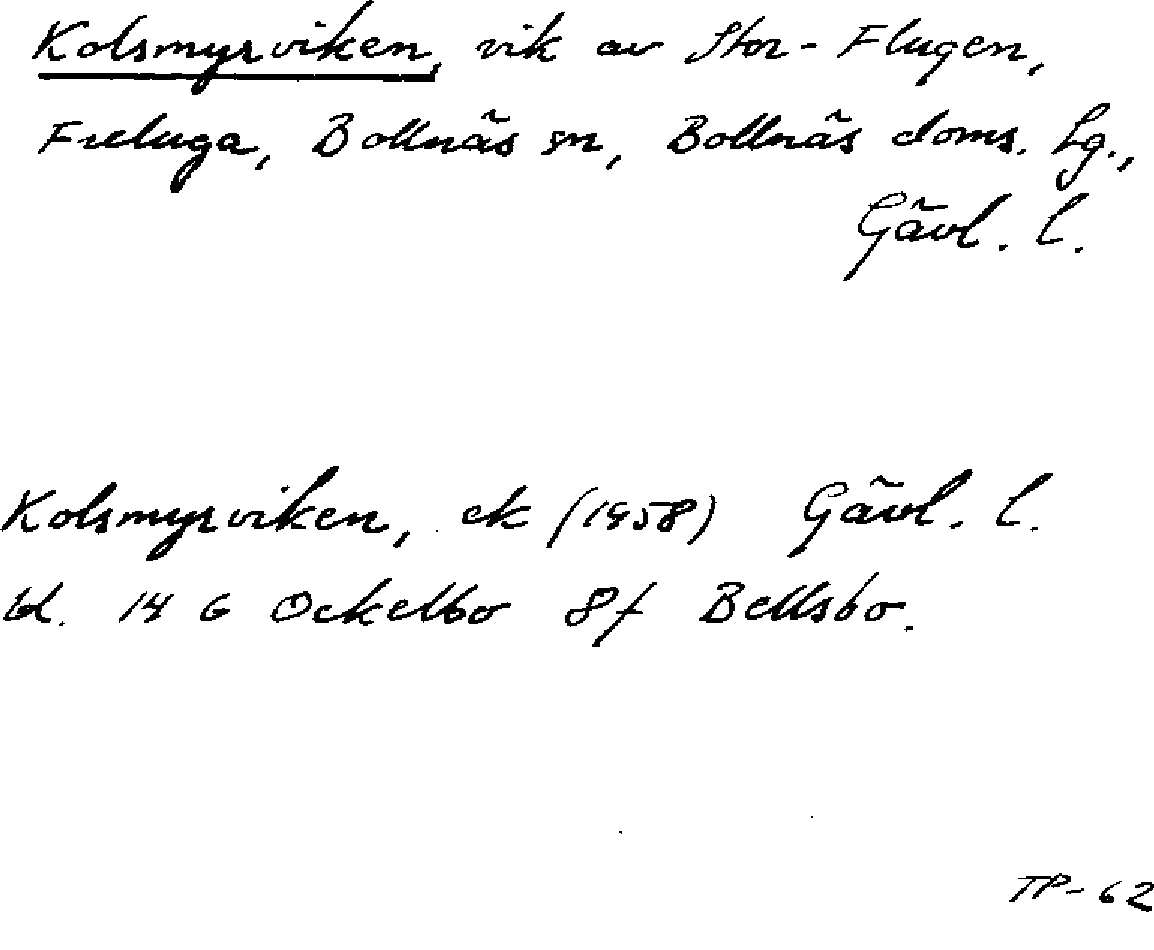 Kolsmyrviken, vik av Stor-Flugen,
Freluga, Bollnäs sn, Bollnäs doms. lg.,
Gävl. l.
Kolsmyrviken, ek (1958) Gävl. l.
bl. 14 G Ockelbo 8f Bellsbo.
TP-62